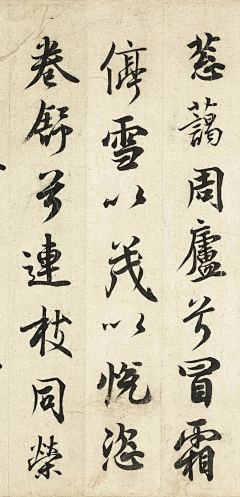 蔥蔼周廬兮冒霜
停雪以茂以悅恣
卷舒兮連枝同榮